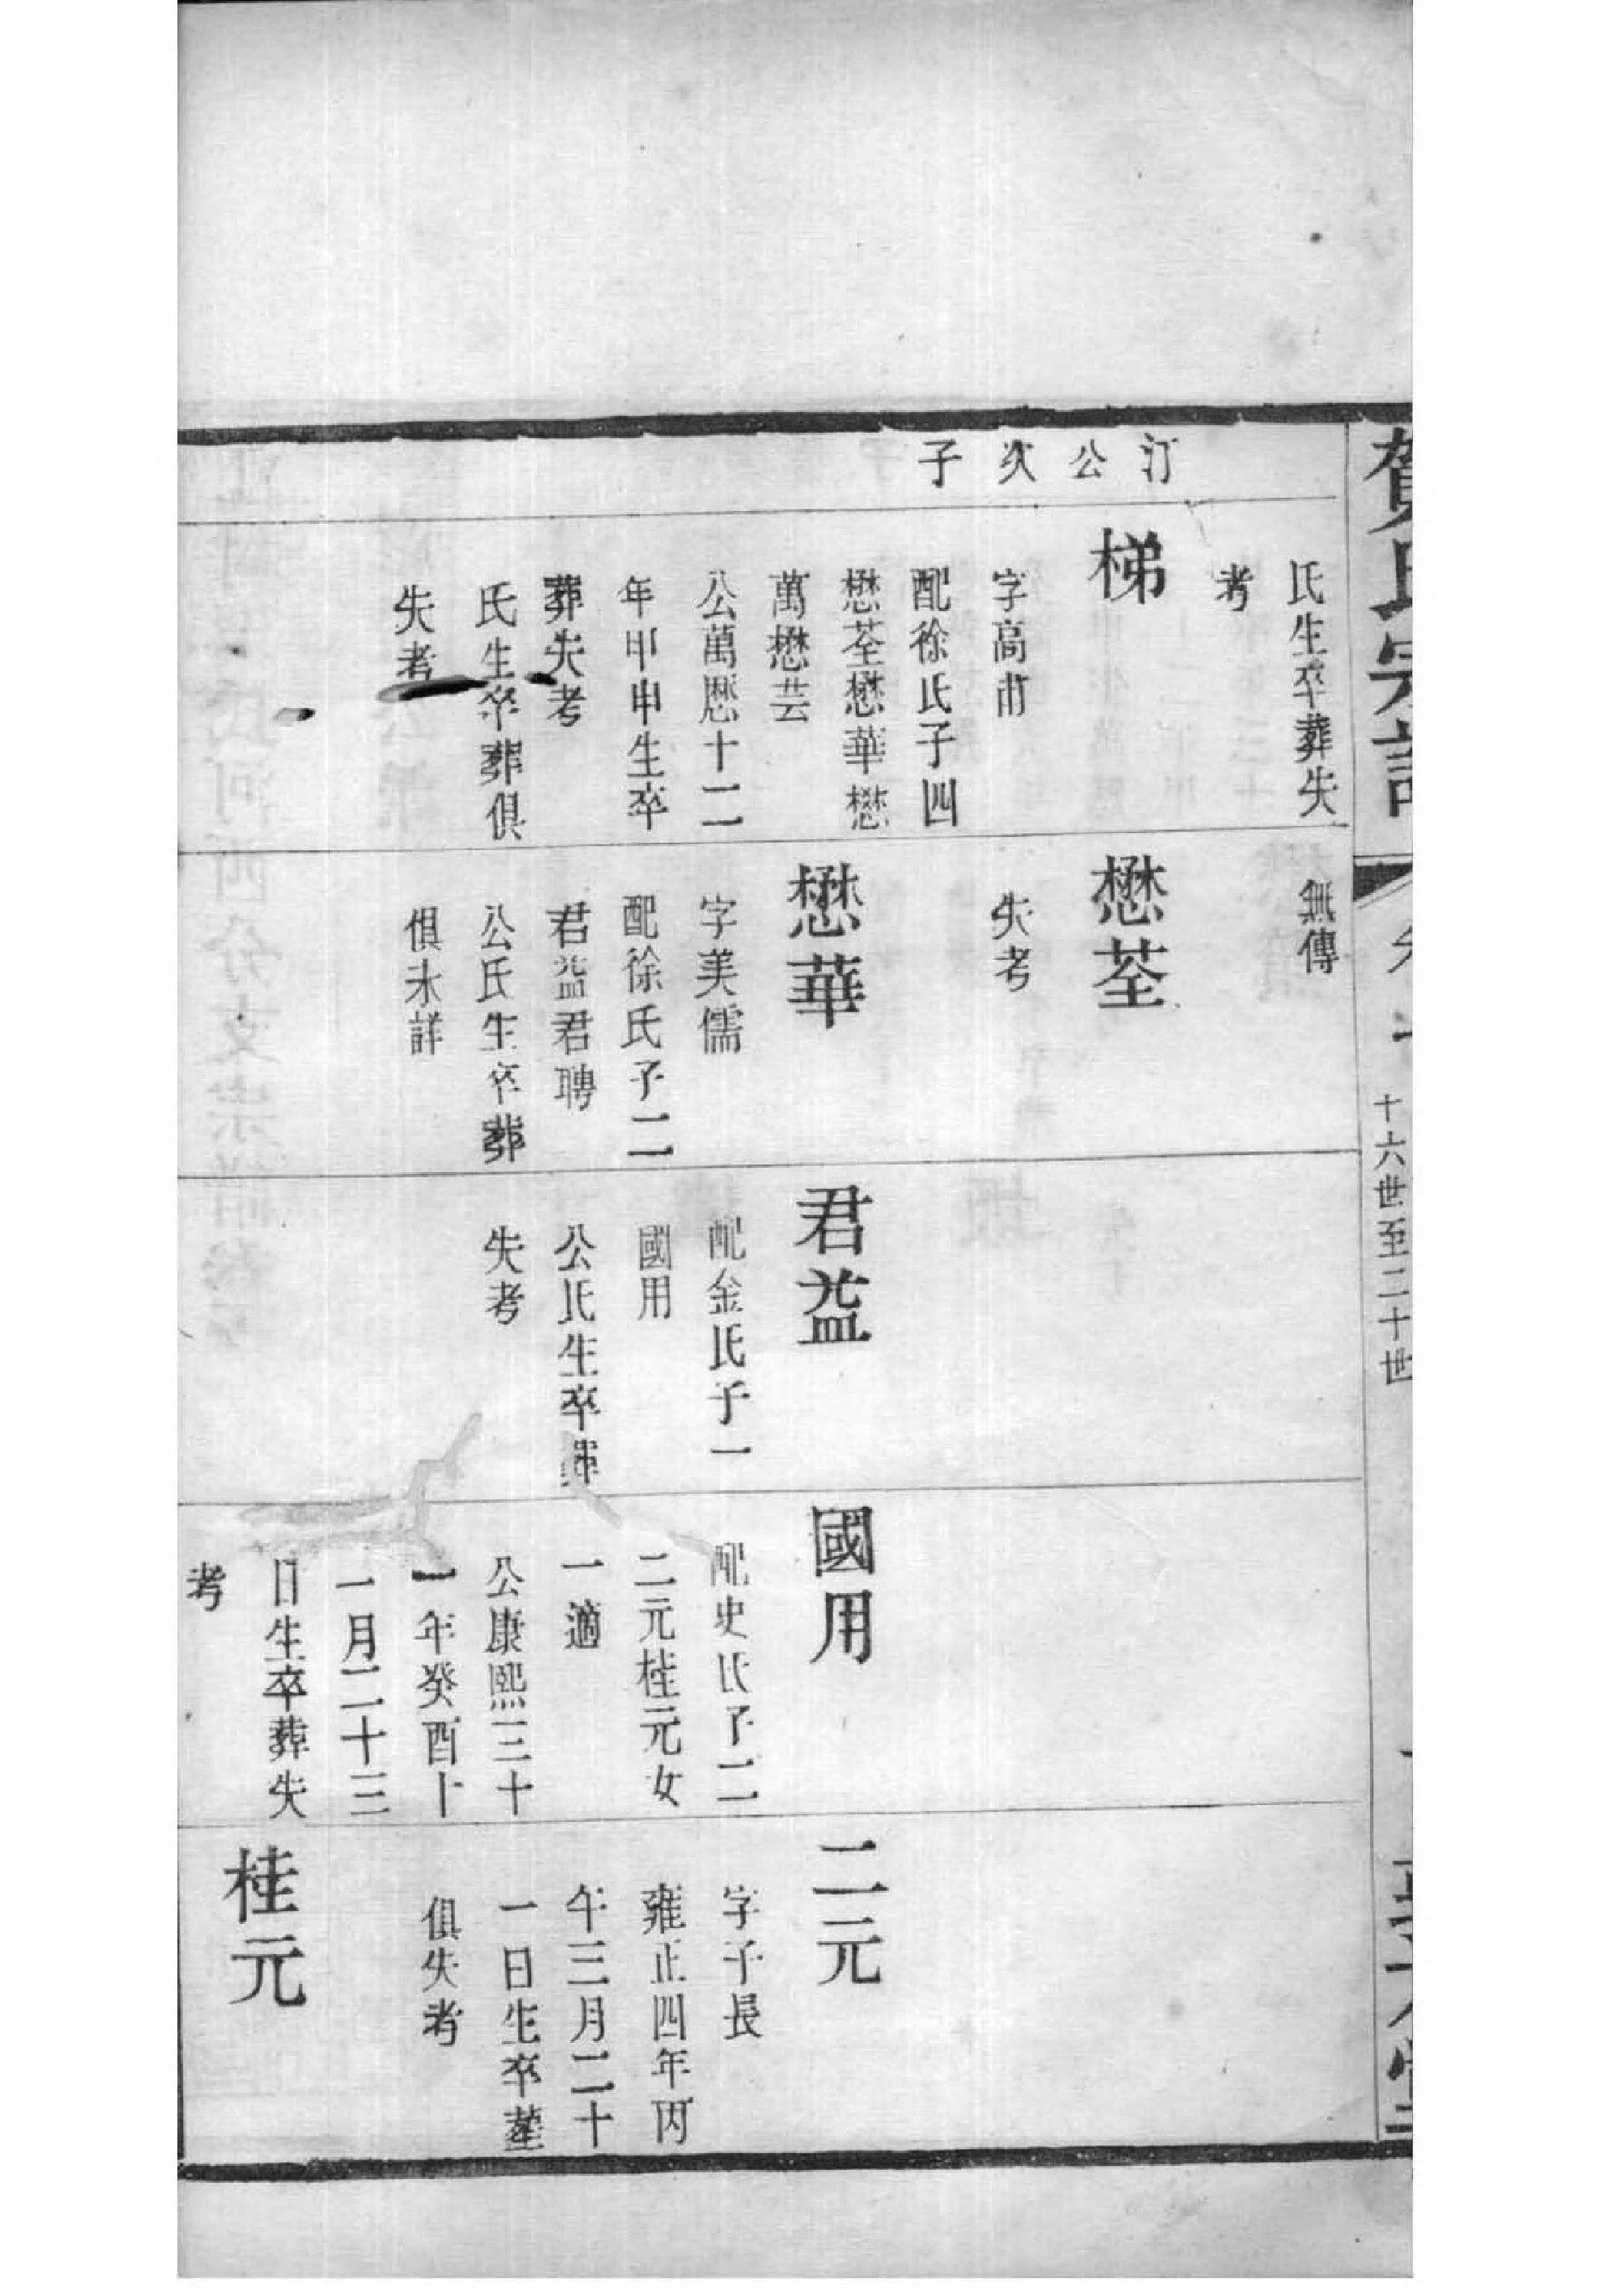 賀氏宗譜
卷一
十六世至二十世
汀公次子
氏生卒葬失
考
梯
字高甫
配徐氏子四
懋荃懋華懋
萬懋芸
公萬曆十二
年甲申生卒
葬失考
氏生卒葬俱
失考
無傳
懋荃
失考
懋華
字美儒
配徐氏子二
君益君聘
公氏生卒葬
俱未詳
君益
配金氏子一
國用
公氏生卒葬
失考
國用
配史氏子二
二元桂元女
一適
公康熙三十
一年癸酉十
一月二十三
日生卒葬失
考
二元
字子長
雍正四年丙
午三月二十
一日生卒塟
俱失考
桂元